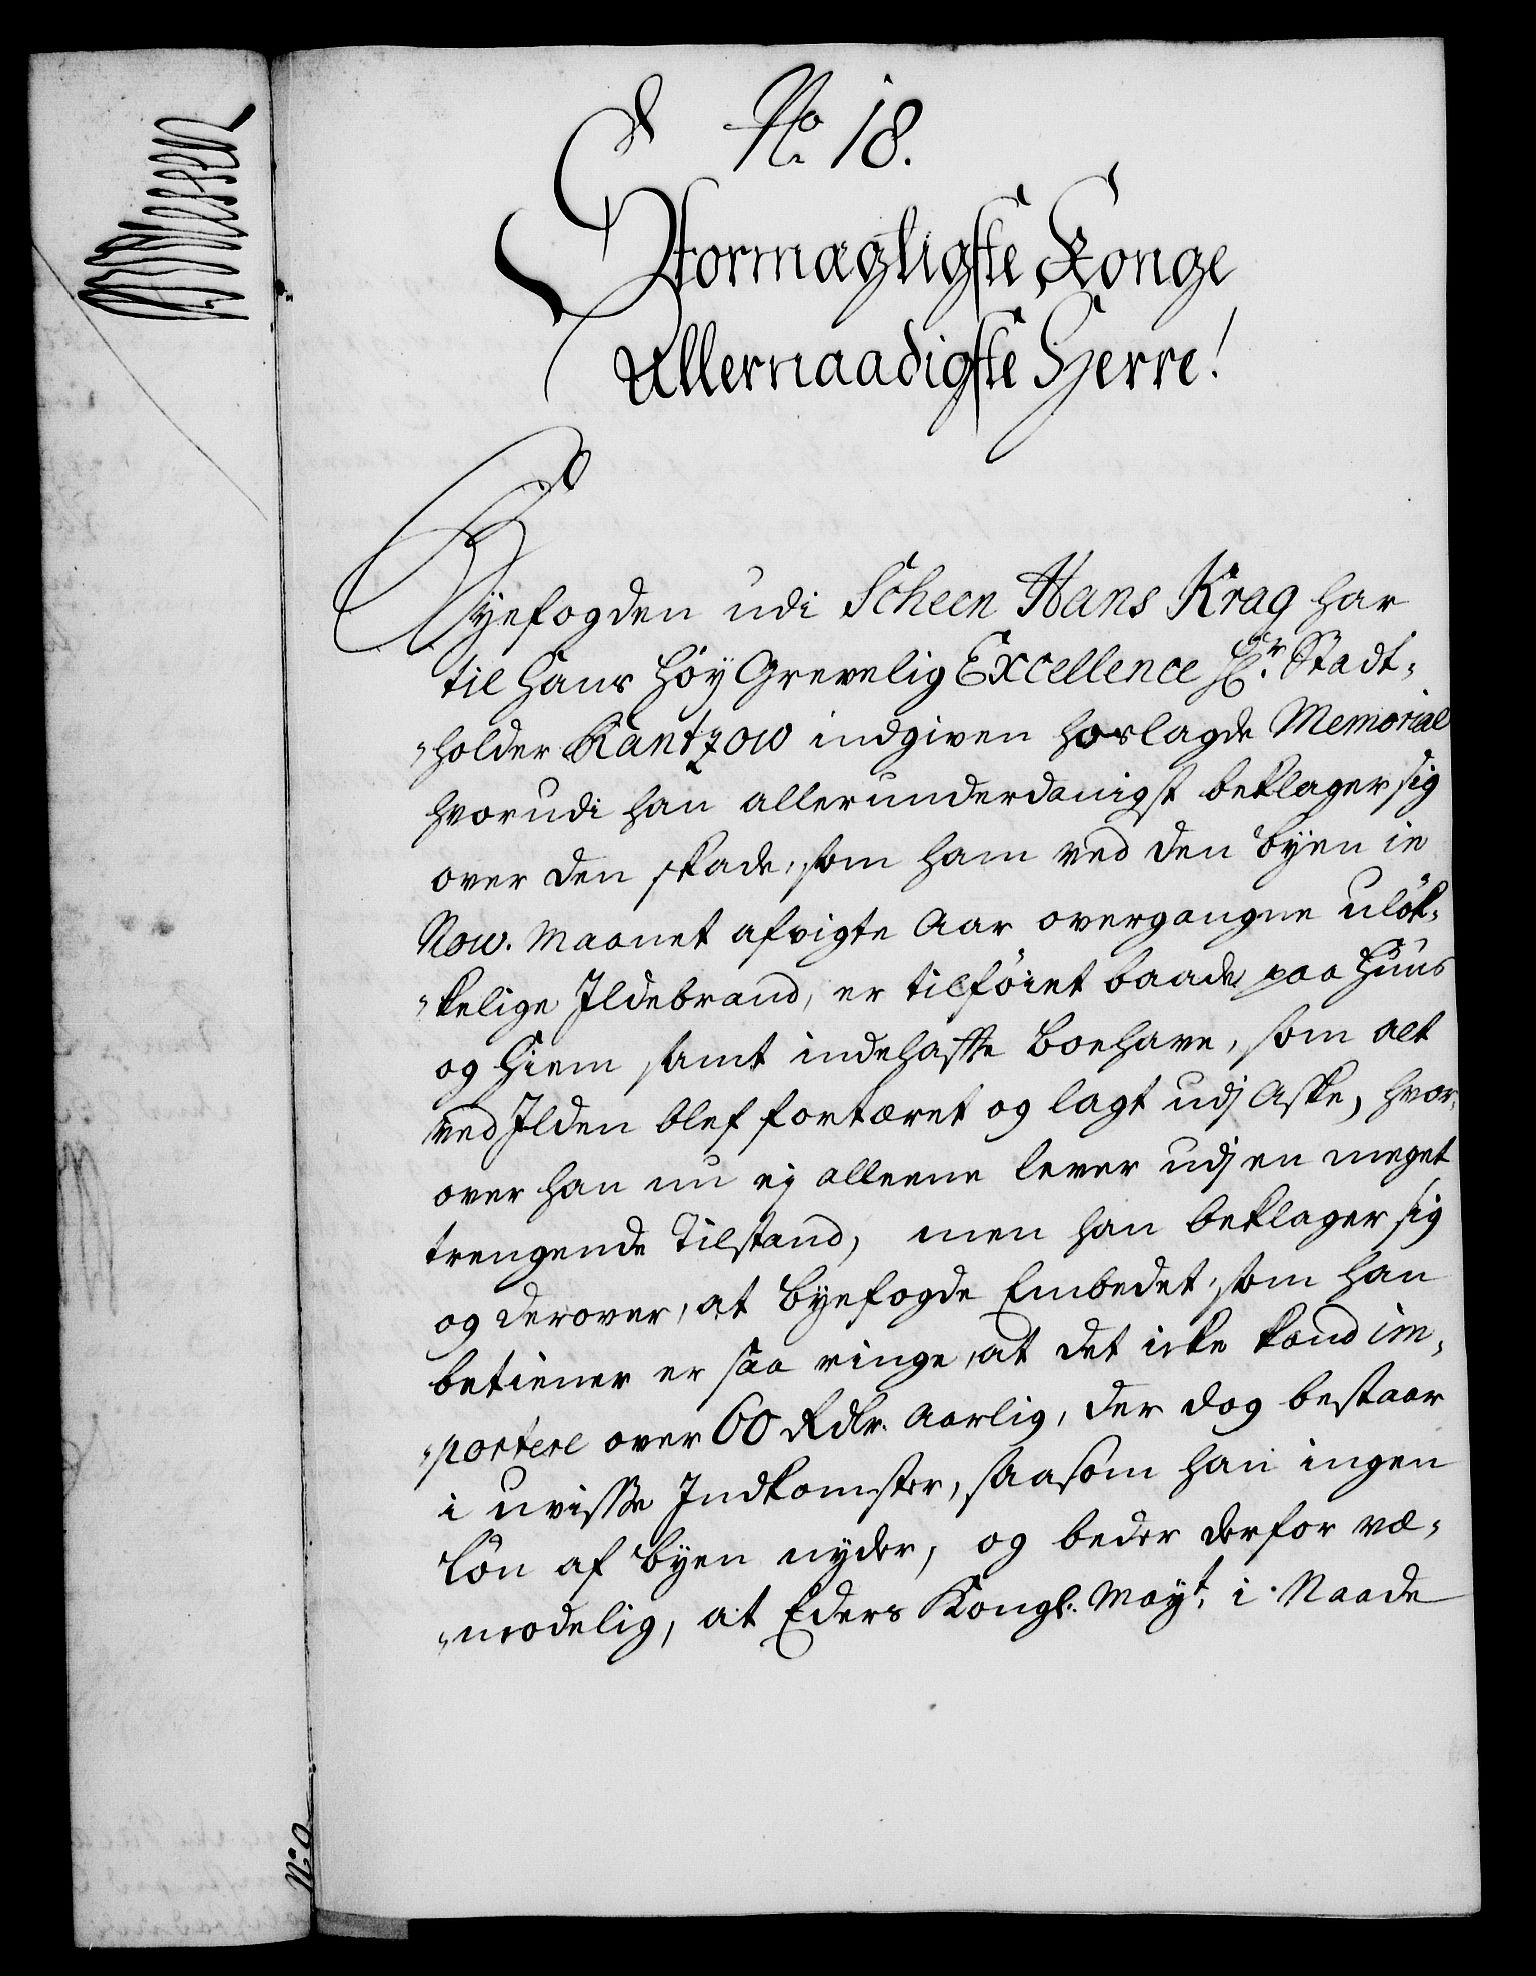 No 18.
Stormægtigste Konge
Allernaadigste Herre!
Byefogden udi Scheen Hans Krag har
til Hans Høy Grevelig Excellence Hr. Stadt-
holder Rantzow indgiven hoslagde Memorial
hvorudi han allerunderdanigst beklager sig
over den skade, som ham ved den byen in
Now. Maanet afvigte Aar overgangne uløk-
kelige Ildebrand, er tilføiet baade paa Huus
og Hiem samt indehaffte Boehave, som alt
ved Ilden blef fortæret og lagt udj Aske, hvor-
over han nu ej alleene lever udj en meget
trengende Tilstand, men han beklager sig
og derover, at Byefogde Embedet, som han
betiener er saa ringe, at det icke kand im-
portere over 60 Rdlr. Aarlig, der dog bestaar
i uvisse Indkomster, saasom han ingen
Løn af Byen nyder, og beder derfor væ-
modelig, at Eders Kongl. Mayt. i Naade
No